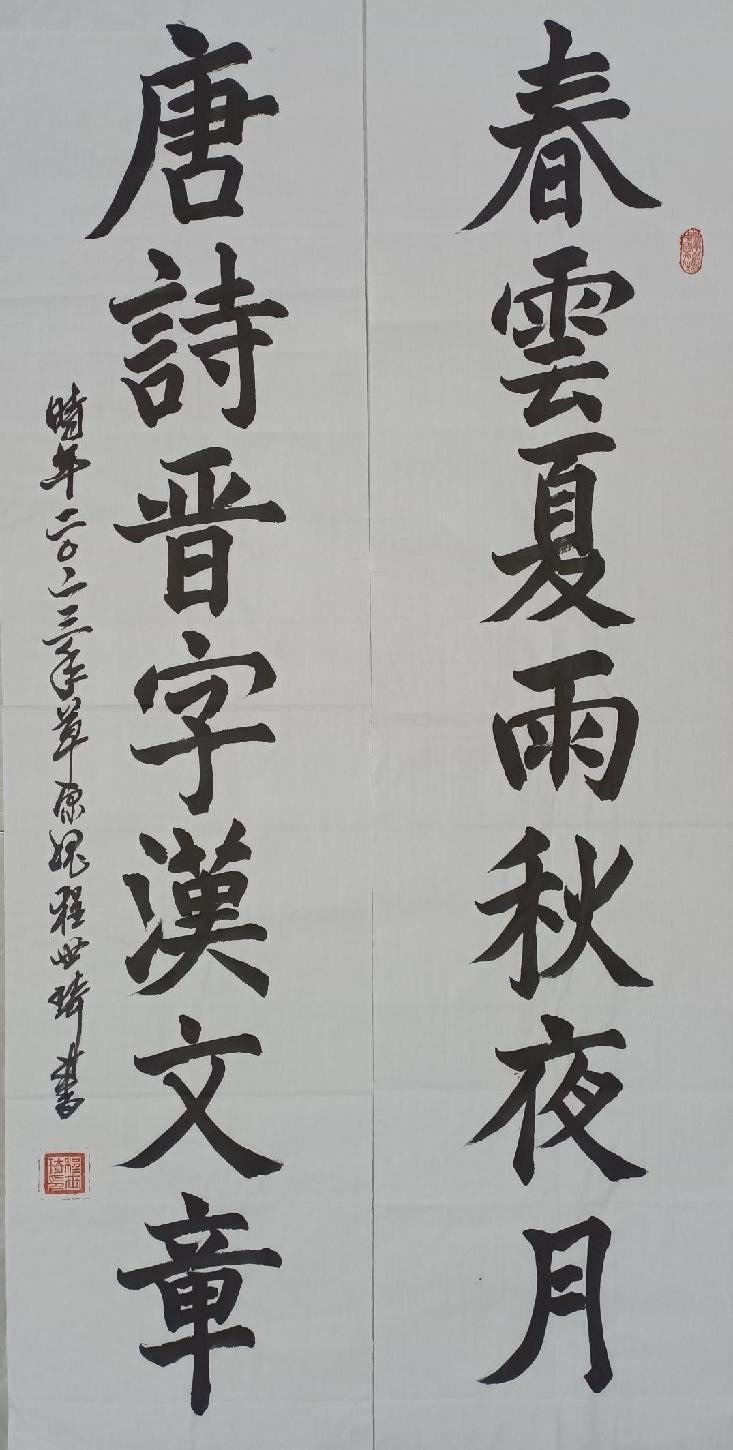 春雲夏雨秋夜月
唐詩晋字漢文章
時年二〇二三年草原魂程世琦書